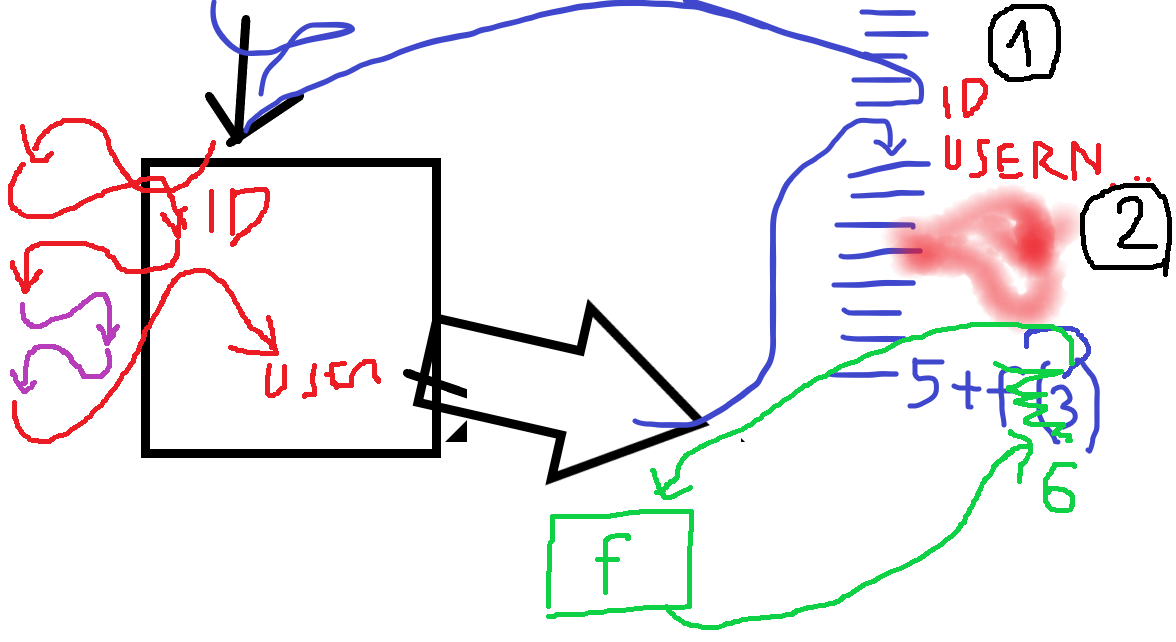 1
ID
USERN
ID
2
USER
5+f(3)
6
f